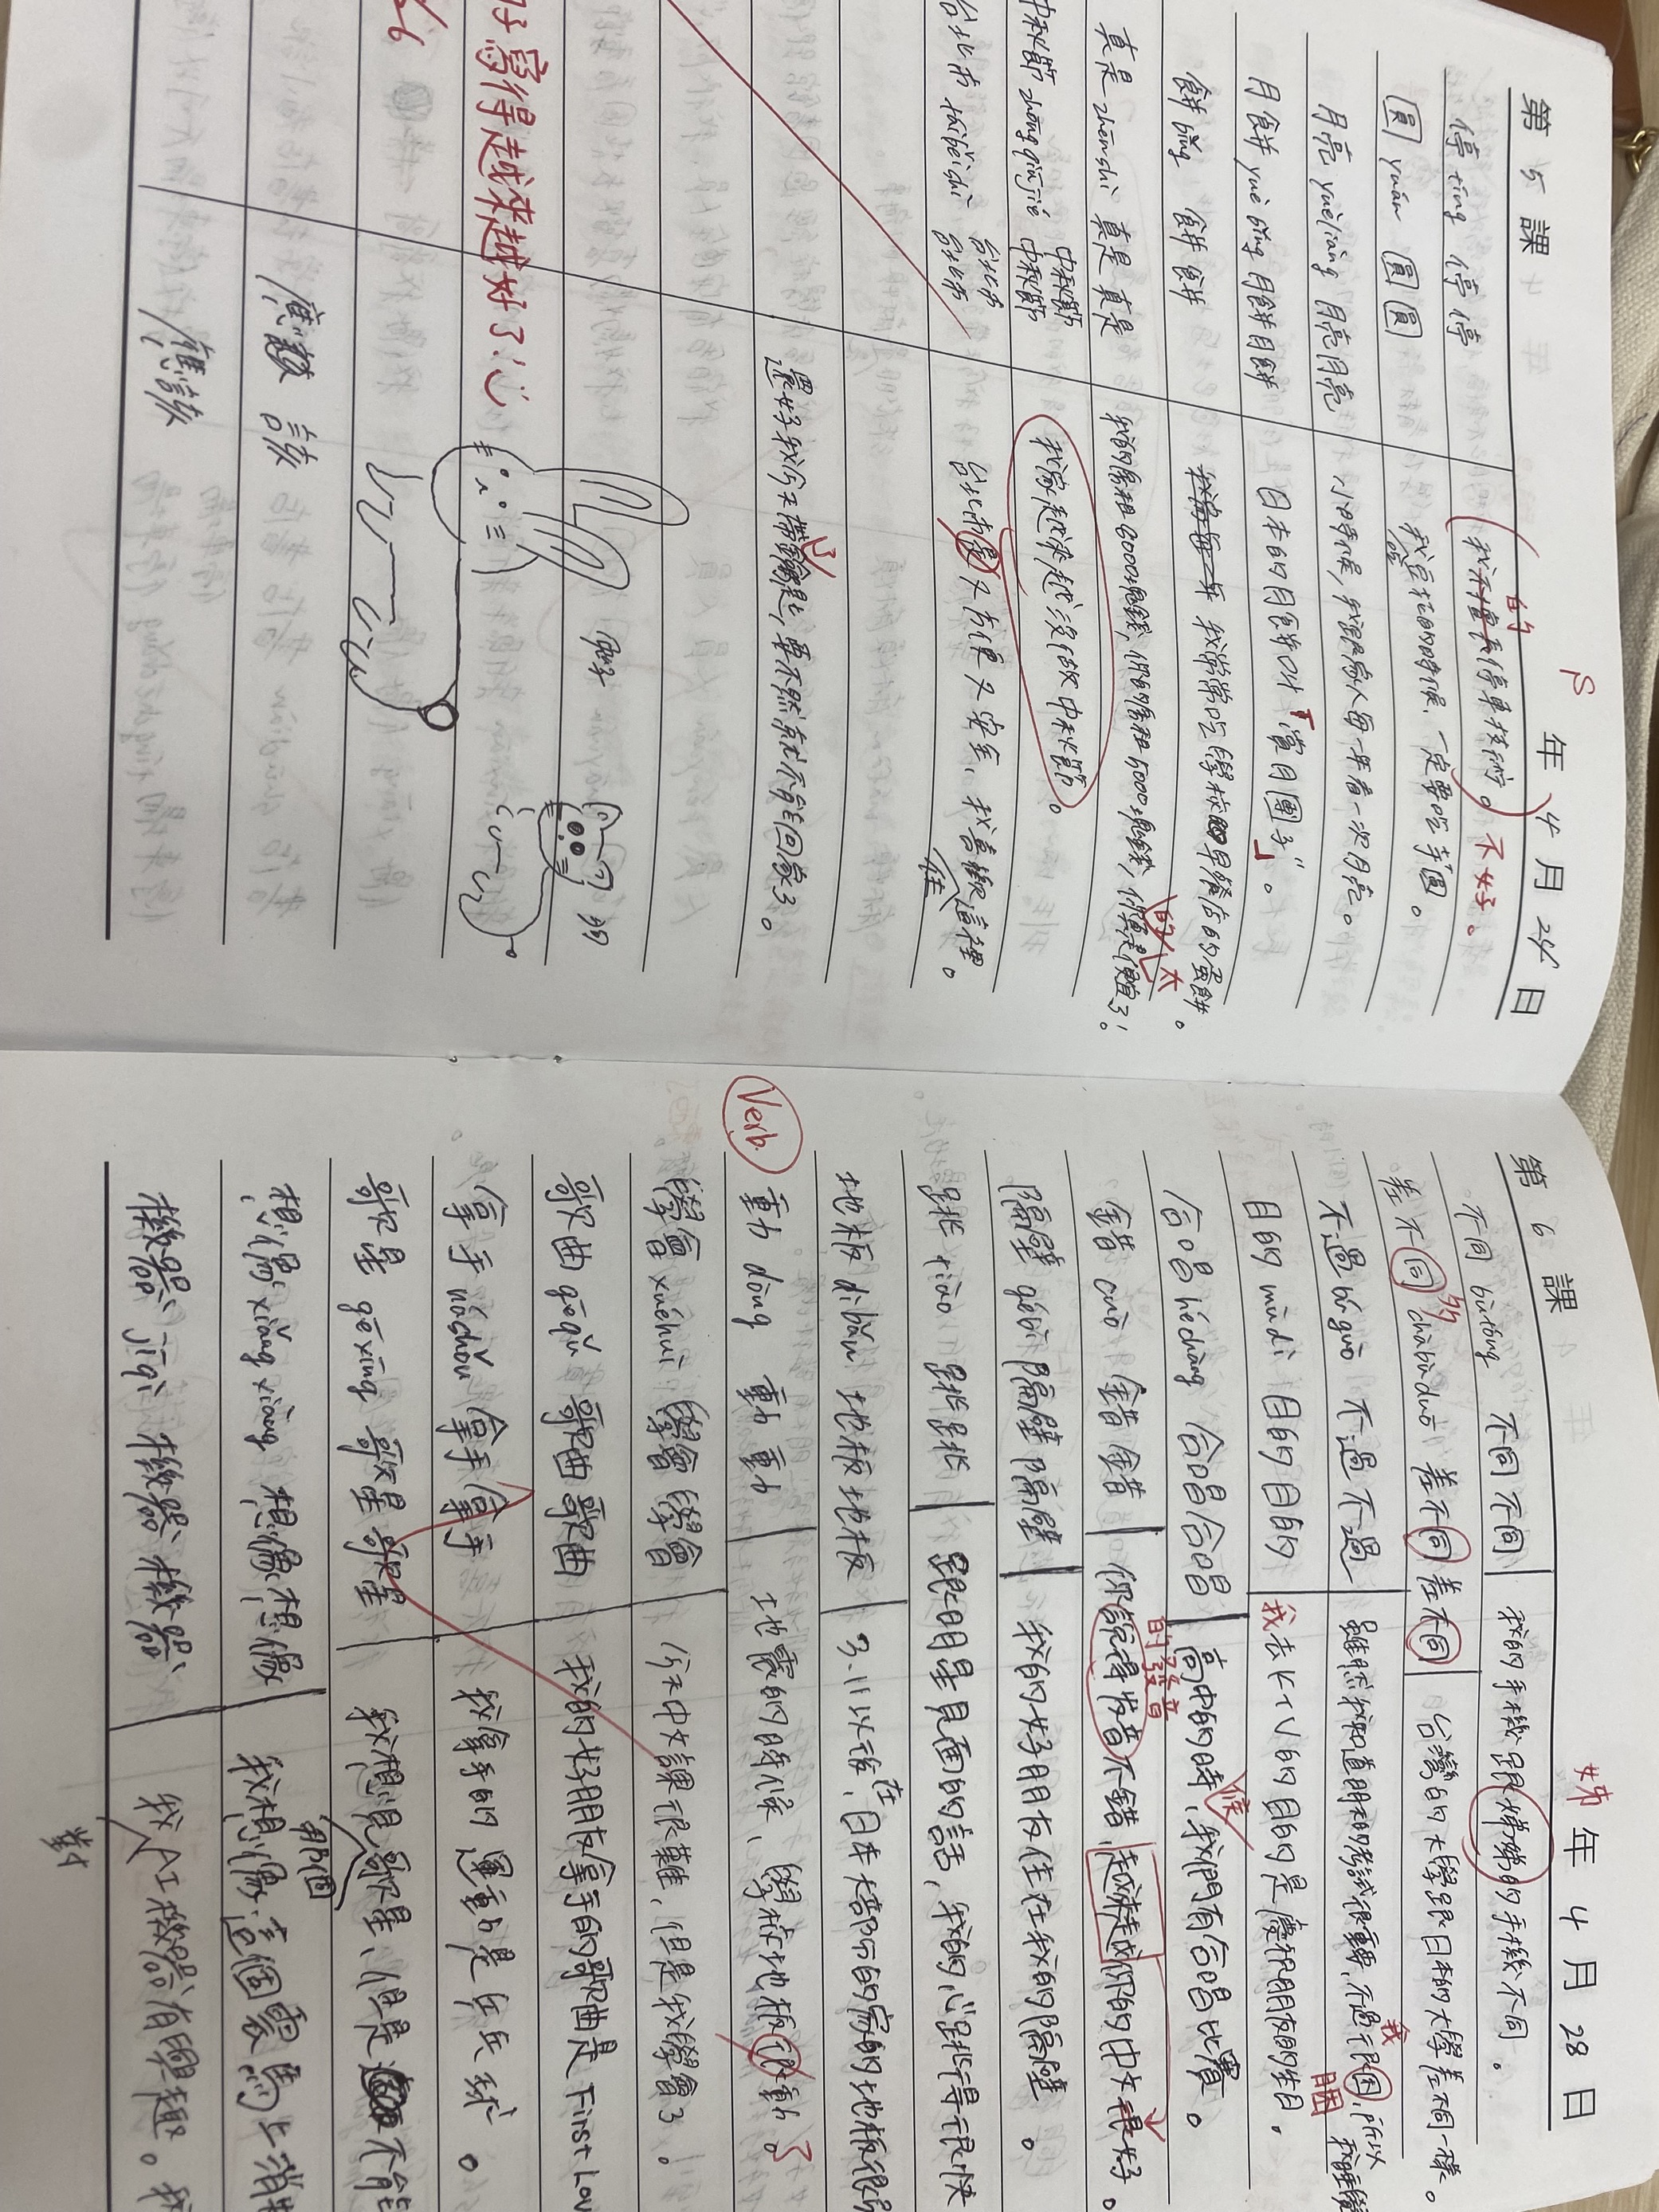 第 5 課 年 4 月 24 日
停 tíng 停 停
我不擅長停車技術。
的
不好。
圓 yuán 圓 圓
一定要吃湯圓。
月亮 yuèliàng 月亮 月亮
小時候,我跟家人每一年看一次月亮。
月餅 yuè bǐng 月餅 月餅
日本的月餅叫「賞月團子」。
餅 bǐng 餅 餅
我常常吃學校早餐店的蛋餅。
真是 zhēnshì 真是 真是
我的房租9000塊錢,你的房租5000塊錢,你真是便宜了!
的 太
中秋節 zhōng qiū jié 中秋節 中秋節
我家越來越沒做中秋節。
台北市 táiběi shì 台北市 台北市
台北市是又方便又安全,我喜歡這裡。
住
還好我今天帶鑰匙,要不然就不能回家了。
了
寫得越來越好了!
應該
應該
第 6 課 年 4 月 28 日
不同 bùtóng 不同 不同
我的手機跟娣娣的手機不同。
差不同 chàbùduō 差不同 差不同
多
台灣的大學跟日本的大學差不同一樣。
不過 bóguò 不過 不過
雖然我知道明天的考試很重要,不過很困,所以我睡覺
我
目的 mùdì 目的 目的
我去KTV的目的是慶祝朋友的生日。
合唱 héchàng 合唱 合唱
高中的時,我們有合唱比賽。
候
錯 cuò 錯 錯
你說得发音不錯,越來越你的中文很好。
的發音
隔壁 gébì 隔壁 隔壁
我的好朋友住在我的隔壁。
跳 tiào 跳 跳
跟明星見面的話,我的心跳得很快
地板 dìbǎn 地板 地板
3.11以後,在日本大部分的家的地板很
Verb.
動 dòng 動 動
地震的時候,學校地板很動了
學會 xuéhuì 學會 學會
今天中文課很難,但是我學會了。
歌曲 gēqǔ 歌曲 歌曲
我的好朋友拿手的歌曲是 First Lov
拿手 náshǒu 拿手 拿手
我拿手的運動是乒乓球。
歌星 gēxīng 歌星 歌星
我想見歌星,但是不能
那個
想像 xiǎng xiàng 想像 想像
我想像這個
機器 jīqì 機器 機器
我人工機器有興趣。我
對